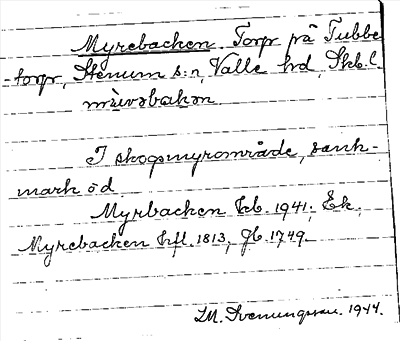 Myrebacken. Torp på Tubbe
-torp, Stenum s:n, Valle hd, Skb.l.
I skogsmyrområde, sank-
mark ö d.
Myrbacken kb. 1941; Ek.
Myrebacken hfl. 1813, Jb. 1749.
I.M. Svenungsson. 1944.